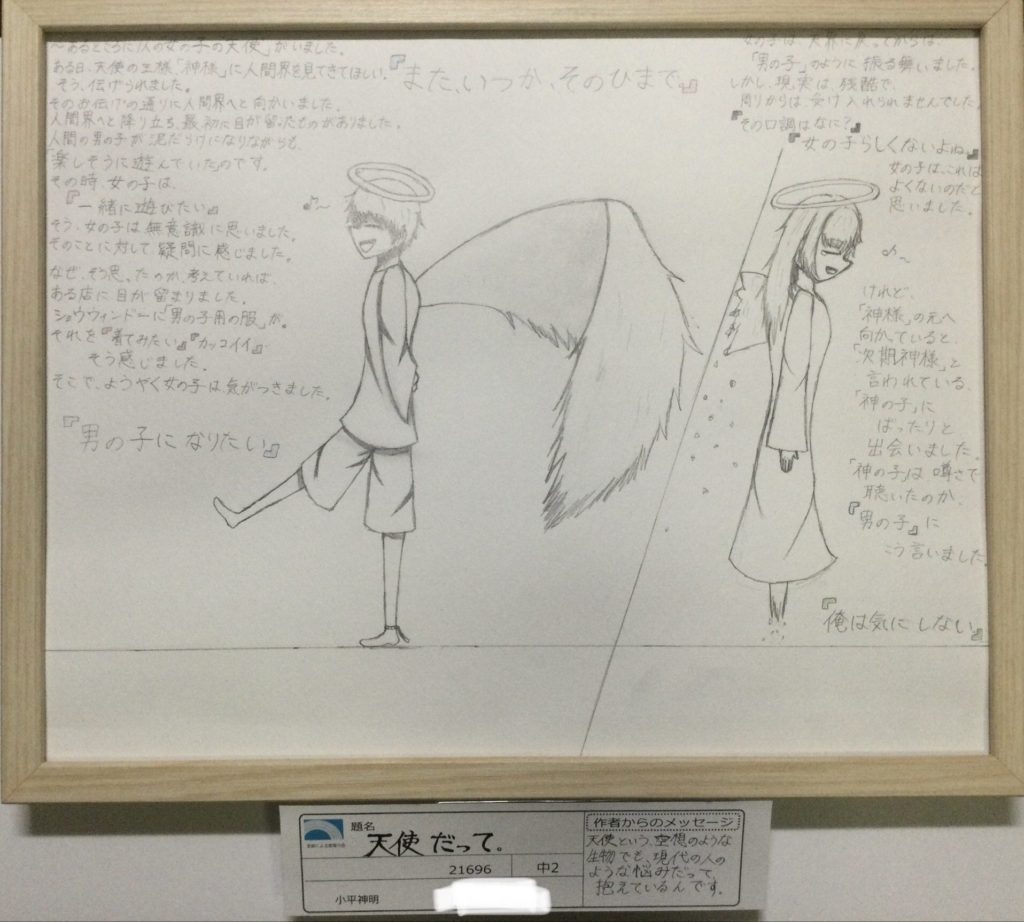 ～あるところに1人の女の子の「天使」がいました。
ある日、天使の王様、「神様」に人間界を見てきてほしい。
そう、伝げられました。
そのお伝げの通りに人間界へと向かいました。
人間界へと降り立ち、最初に目が留ったものがありました。
人間の男の子が泥だらけになりながらも、
「楽しそうに遊んでいた」のです。
その時、女の子は、
『一緒に遊びたい』
そう、女の子は無意識に思いました。
そのことに対して疑問に感じました。
なぜ、そう思ったのか、考えていれば、
ある店に目が留まりました。
ショウウィンドーに「男の子用の服」が。
それを『着てみたい』『カッコイイ』
そう感じました。
そこで、ようやく女の子は、気がつきました。
『男の子になりたい』
『また、いつか、そのひまで。』
女の子は、天界に戻ってからは、
「男の子」のように振る舞いました。
しかし、現実は、残酷で、
周りからは、受け入れられませんでした。
『その口調はなに？』
『女の子らしくないよね』
女の子は、これは
よくないのだと
思いました。
けれど、
「神様」の元へ
向かっていると、
「次期神様」と
言われている、
「神の子」に
ばったりと
出会いました。
「神の子」は噂さで
聴いたのか、
『男の子』に
こう言いました。
『俺は気にしない』
題名
天使だって。
21696
中2
小平神明
作者からのメッセージ
天使という、空想のような
生物でも、現代の人の
ような悩みだって、
抱えているんです。